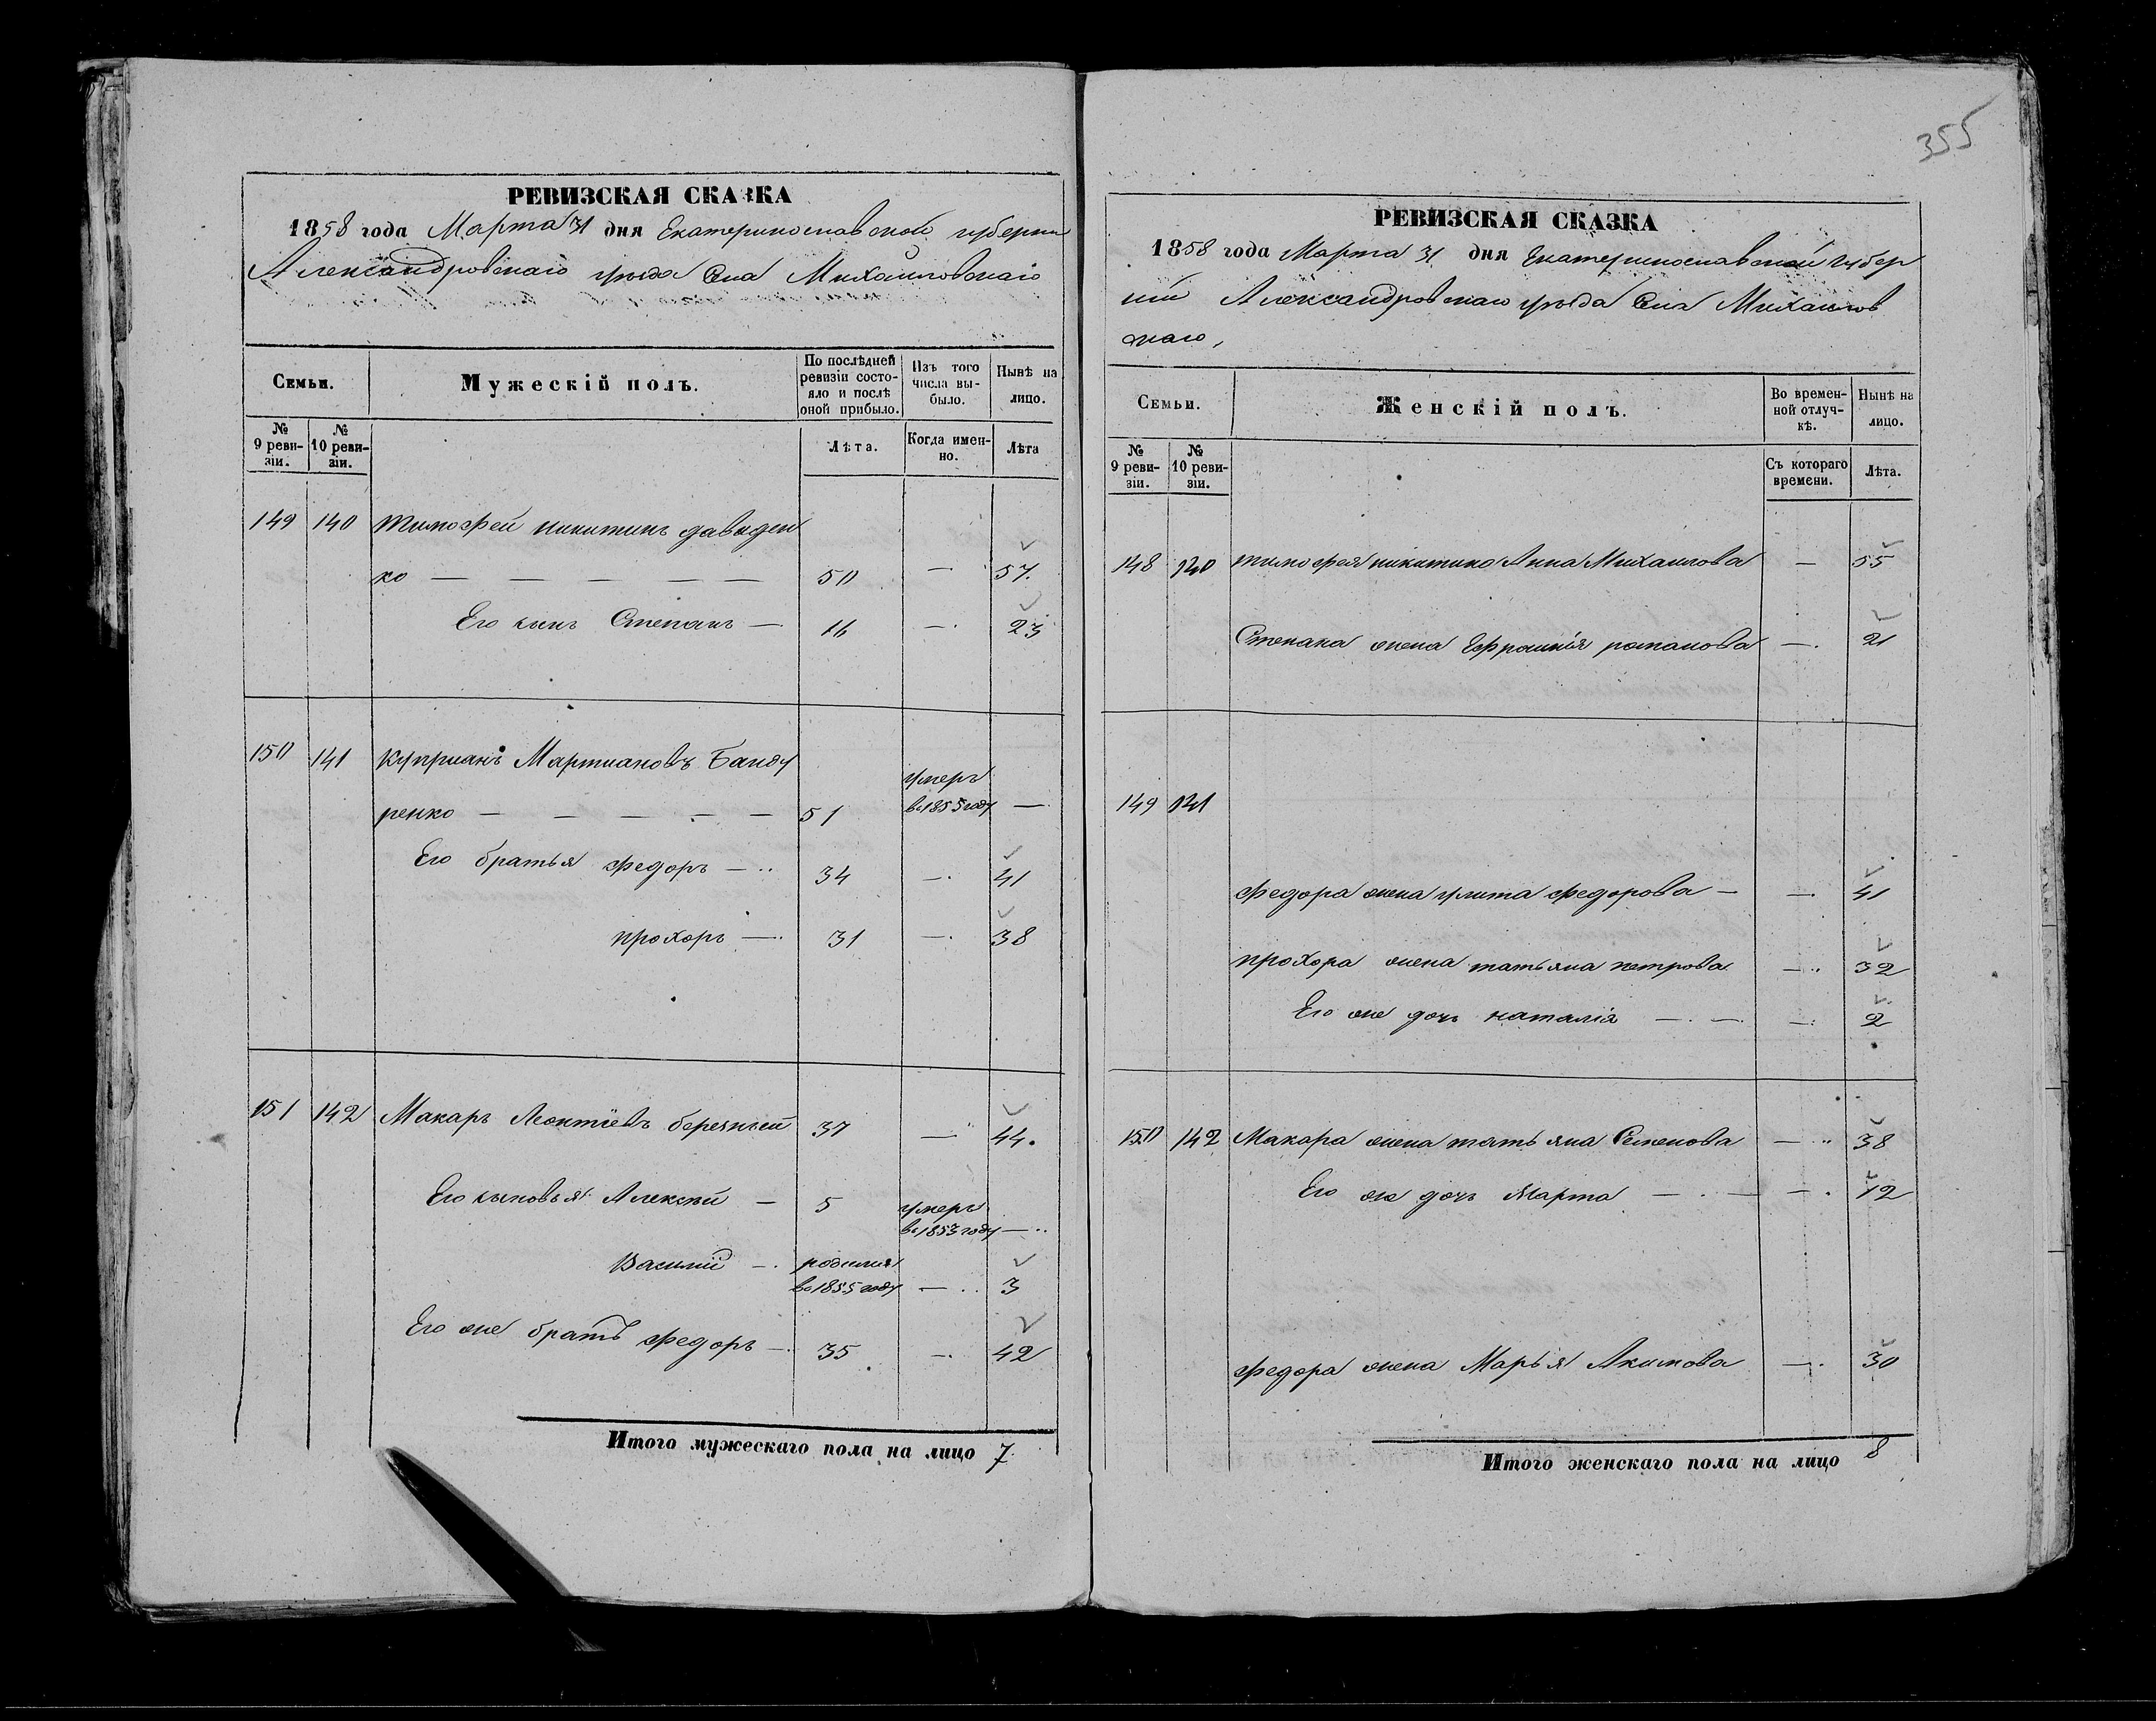 355
РЕВИЗСКАЯ СКАЗКА
1858 года Марта 31 дня Екатеринославской губернии
Александровскаго уезда Села Михайловскаго
Семьи.
Мужескій полъ.
По послѣдней ревизіи состояло и послѣ оной прибыло.
Изъ того числа выбыло.
Нынѣ на лицо.
№ 9 ревизіи.
№ 10 ревизіи.
Лѣта.
Когда именно.
Лѣта
149 140 Тимофей никитинъ давиден
ко — — — — — — 50 — 57.
Его сынъ Степанъ — 16 — 23
150 141 Куприанъ Мартиановъ Банду
ренко — — — — — — 51 умеръ в 1855 году —
Его братья Федоръ — 34 — 41
прохоръ — 31 — 38
151 142 Макаръ Леонтіевъ 37 — 44.
Его сыновья Алексѣй — 5 умеръ в 1853 году —
Василій — родился в 1855 году — 3
Его же братъ Федоръ — 35 — 42
Итого мужескаго пола на лицо 7
РЕВИЗСКАЯ СКАЗКА
1858 года Марта 31 дня Екатеринославской губер
ніи Александровскаго уезда Села Михайлов
скаго,
Семьи.
Женскій полъ.
Во временной отлучкѣ.
Нынѣ на лицо.
№ 9 ревизіи.
№ 10 ревизіи.
Съ котораго времени.
Лѣта.
148 140 Тимофея никитина Анна Михаилова — 55
Степана жена Ефросинія романова — 21
149 141
Федора жена улита Федорова — — 41
прохора жена татьяна петрова — 32
Его же дочь наталія — — — 2
150 142 Макара жена татьяна Семенова — 38
Его же дочь Марта — — — 12
Федора жена Марья Акимова — 30
Итого женскаго пола на лицо 8